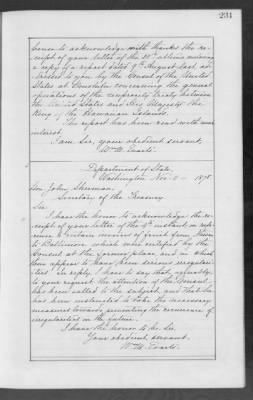 231
honor to acknowledge with thanks the re-
ceipt of your letter of the ultimo enclosing
a copy of a report dated 9th August last ad-
dressed to you by the Consul of the United
States at Honolulu concerning the general
operations of the reciprocity treaty between
the United States and His Majesty the
King of the Hawaiian Islands.
The report has been read with much
interest.
I am Sir, your obedient servant,
Wm M. Evarts.
Department of State,
Washington Nov. 1878.
Hon. John Sherman,
Secretary of the Treasury.
Sir:
I have the honor to acknowledge the re-
ceipt of your letter of the instant in ref-
erence to certain invoices of fruit from
to Baltimore which were certified by the
Consul at the former place, and in which
there appear to have been serious irregulari-
ties. In reply, I have to say that, agreeably
to your request the attention of the Consul
has been called to the subject, and that he
has been instructed to take the necessary
measures towards preventing the recurrence of
irregularities in the future.
I have the honor to be, Sir,
Your obedient servant,
Wm M. Evarts.